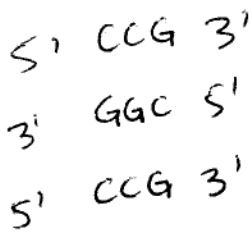 5' CCG 3'
3' GGC 5'
5' CCG 3'